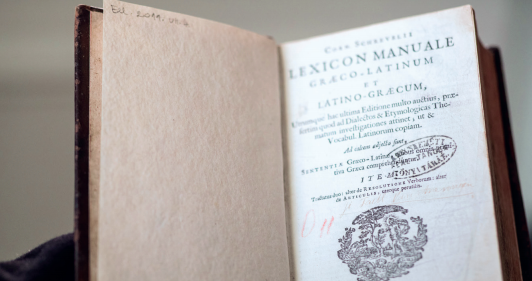 CORN SCHREVELII
LEXICON MANUALE
GRÆCO-LATINUM
ET
LATINO-GRÆCUM,
Utrumque hac ultima Editione multo auctius, præ-
sertim quod ad Dialectos & Etymologicas The-
matum investigationes attinet, ut &
Vocabul. Latinorum copiam.
Ad calcem adjectæ sunt,
SENTENTIÆ Græco-Latinæ
tiva Græca
ITEM
Tractatus duo: alter de RESOLUTIONE Verborum: alter
de ARTICULIS, uterque perutilis.